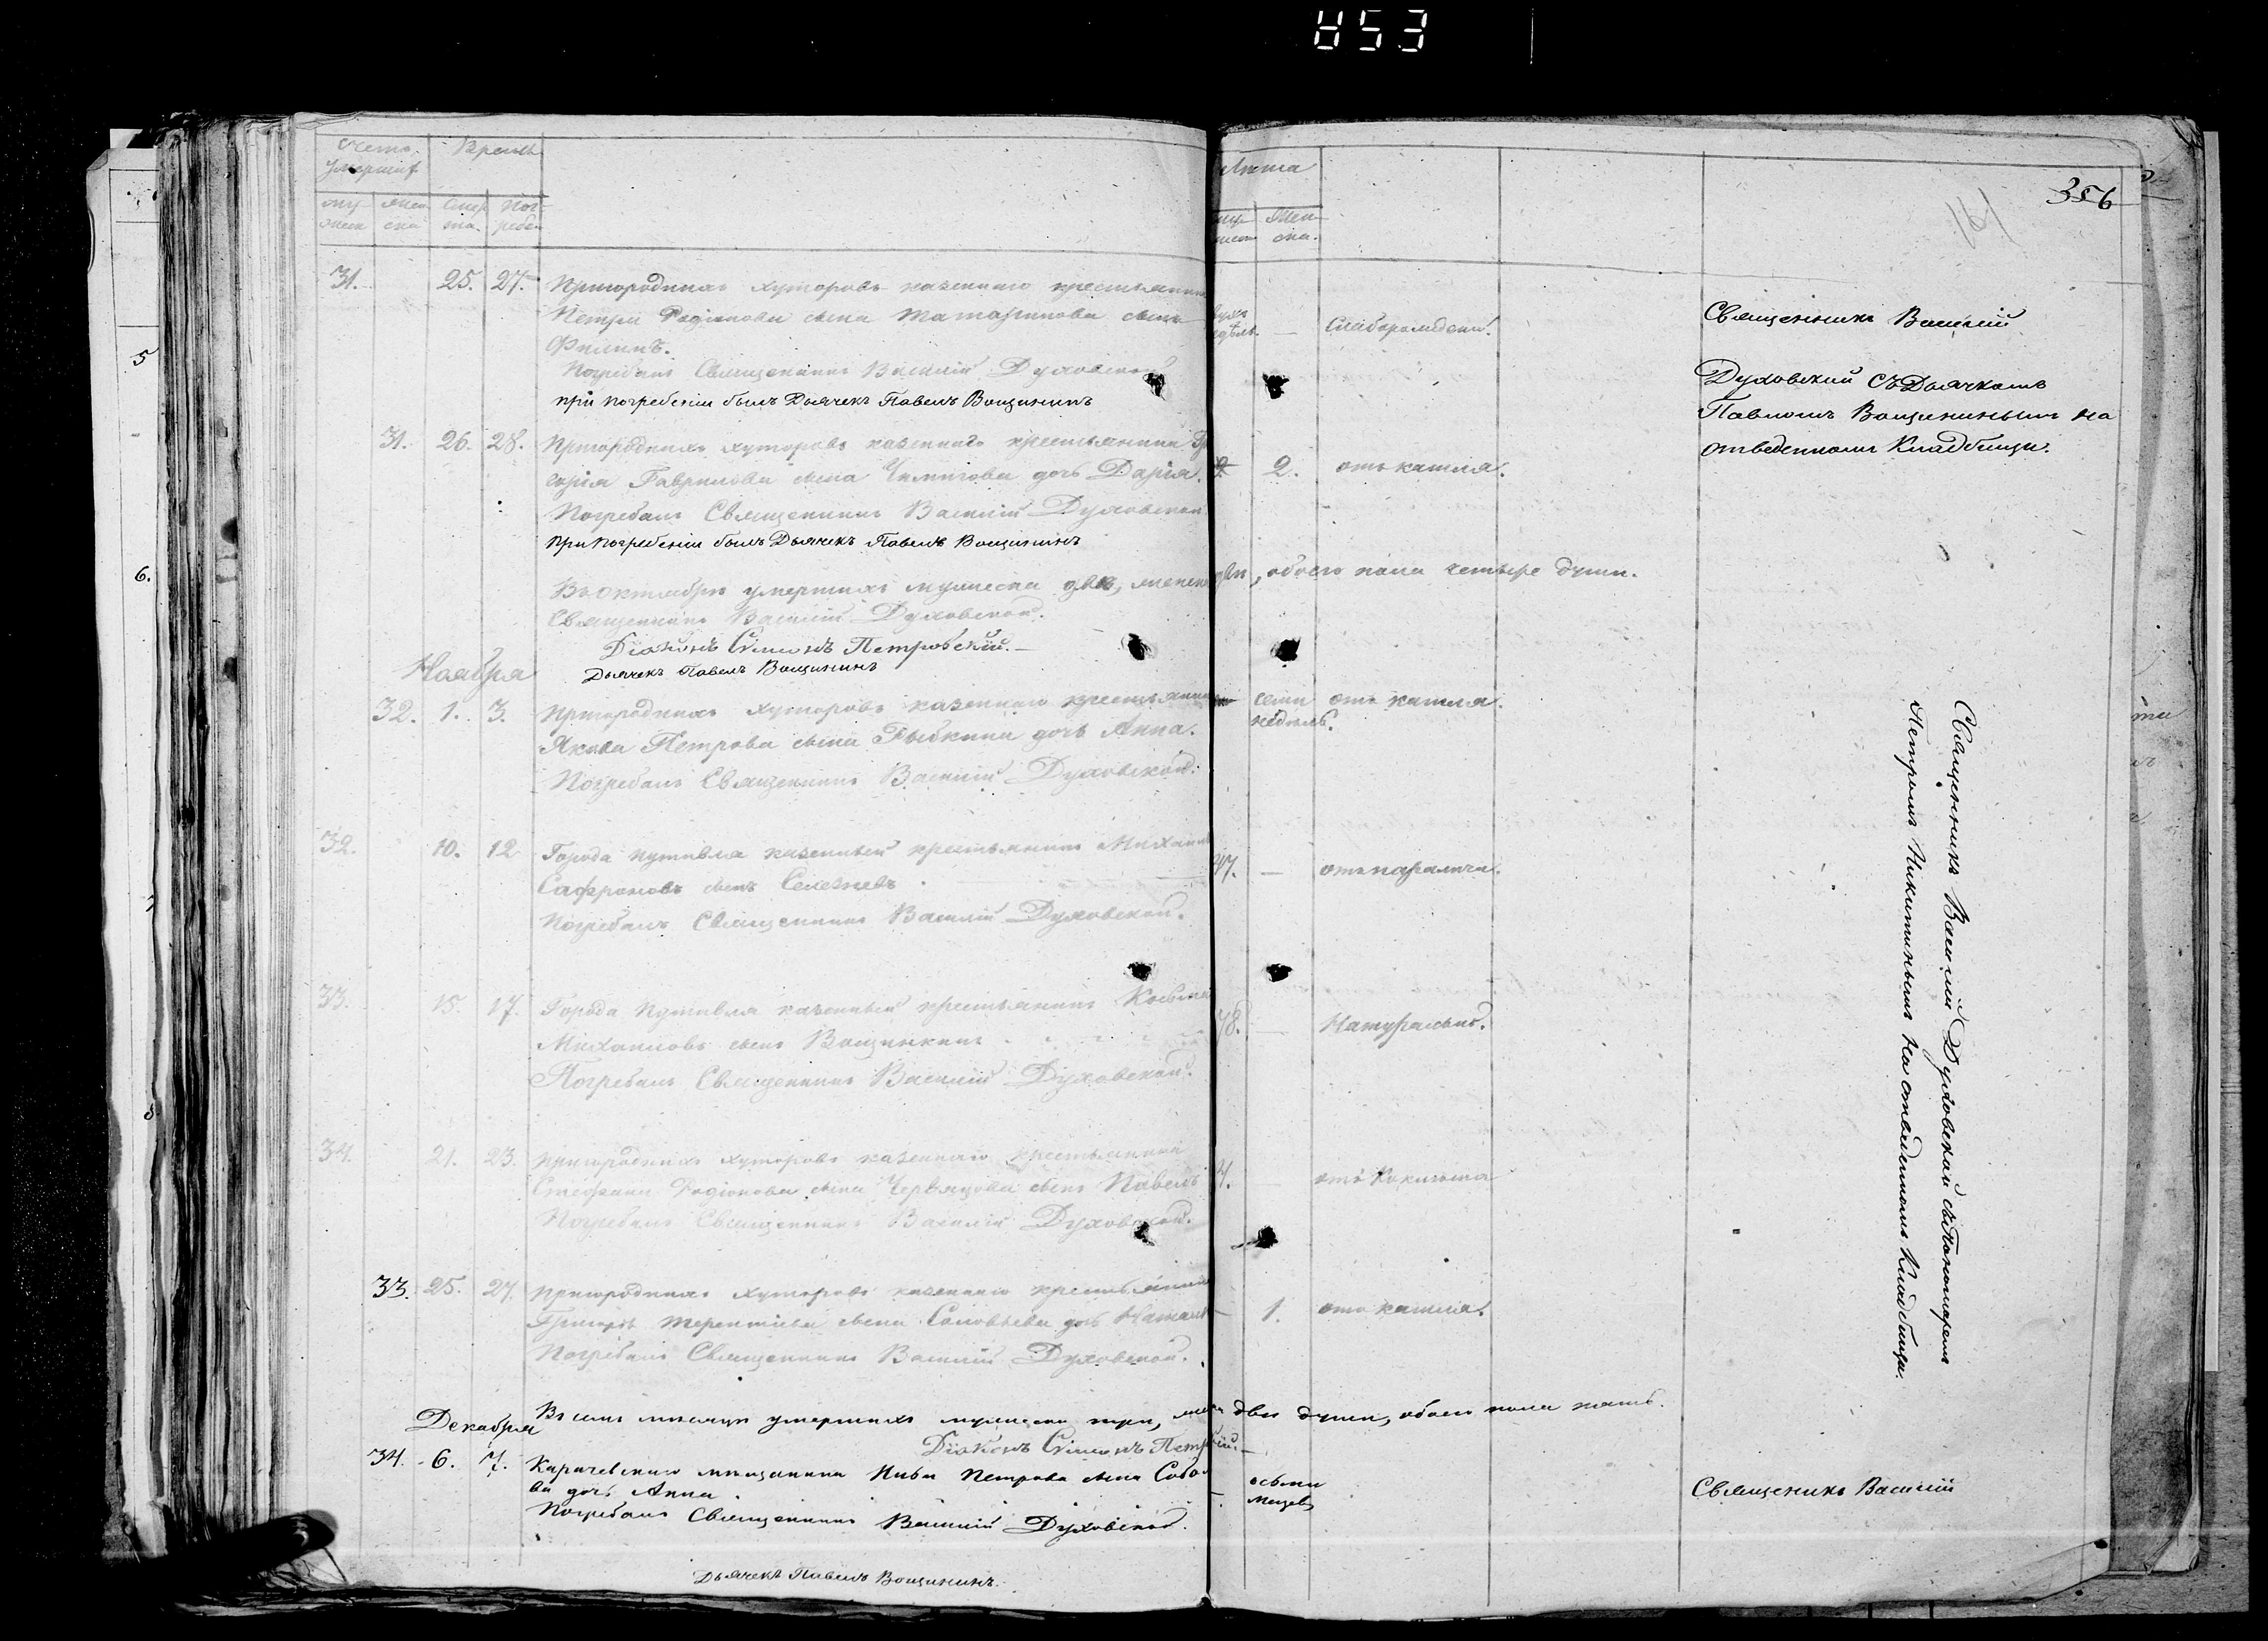 853
356
161
Счетъ умершихъ
Время
Лета
муж женска
смер та.
пог ребен
Жен ска.
31. 25. 27. Пригородныхъ хуторовъ казеннаго крестьянина
Петра Родіонова сына сынъ
Филипъ.
двухъ недѣль. — Слаборожденъ.
Погребалъ Священникъ Василій Духовской
при погребеніи былъ Дьячекъ Павелъ Вощининъ
Священникъ Василій
Духовский съ Дьячкомъ
Павломъ Вощининымъ на
отведенномъ Кладбищи.
31. 26. 28. Пригородныхъ хуторовъ казеннаго крестьянина
Гаврилова сына дочь Дарія. 2. отъ кашля.
Погребалъ Священникъ Василій Духовской
При погребеніи былъ Дьячекъ Павелъ Вощининъ
Въ октябрѣ умершихъ мужеска два, женска двѣ, обоего пола четыре души.
Священникъ Василій Духовской.
Діаконъ Сімеонъ Петровскій.—
Дьячекъ Павелъ Вощининъ
Ноября
32. 1. 3. Пригородныхъ хуторовъ казеннаго крестьянина
Якова Петрова сына Рыбкина дочь Анна.
семи недѣль. отъ кашля.
Погребалъ Священникъ Василій Духовской.
32. 10. 12 Города Путивля казенный крестьянинъ Михаилъ
Сафроновъ сынъ Селезневъ. 47. — отъ паралича.
Погребалъ Священникъ Василій Духовской.
33. 15. 17. Города Путивля казенный крестьянинъ Косьма
Михаиловъ сынъ Вощинкинъ 78. — Натурально.
Погребалъ Священникъ Василій Духовской.
34. 21. 23. Пригородныхъ хуторовъ казеннаго крестьянина
Стефана Родіонова сына Червяцова сынъ Павелъ 4. — отъ Коклюша
Погребалъ Священникъ Василій Духовской.
33. 25. 27. Пригородныхъ хуторовъ казеннаго крестьянина
Григорія Терентіева сына Соловьева дочь — 1. отъ кашля.
Погребалъ Священникъ Василій Духовской.
Священникъ Василій Духовской съ Пономаремъ
Петромъ Никитинымъ на отведенномъ Кладбищи.
Въ семъ мѣсяцѣ умершихъ мужеска три, женска двѣ души, обоего пола пять.
Діаконъ Сімеонъ Петровскій.—
Декабря
34. 6. 7. Карачевскаго мѣщанина Петрова сына
ва дочь Анна — осьми месяцевъ
Погребалъ Священникъ Василій Духовской.
Священникъ Василій
Дьячекъ Павелъ Вощининъ.